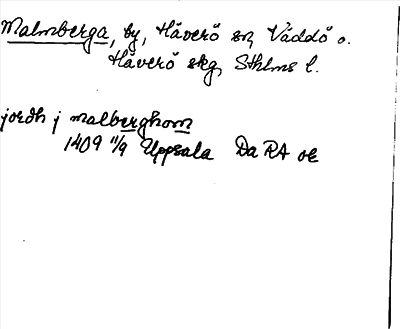 Malmberga, by, Häverö sn, Väddö o.
Häverö skg, Sthlms l.
jordh j malberghom
1409 11/9 Uppsala Da RA ok